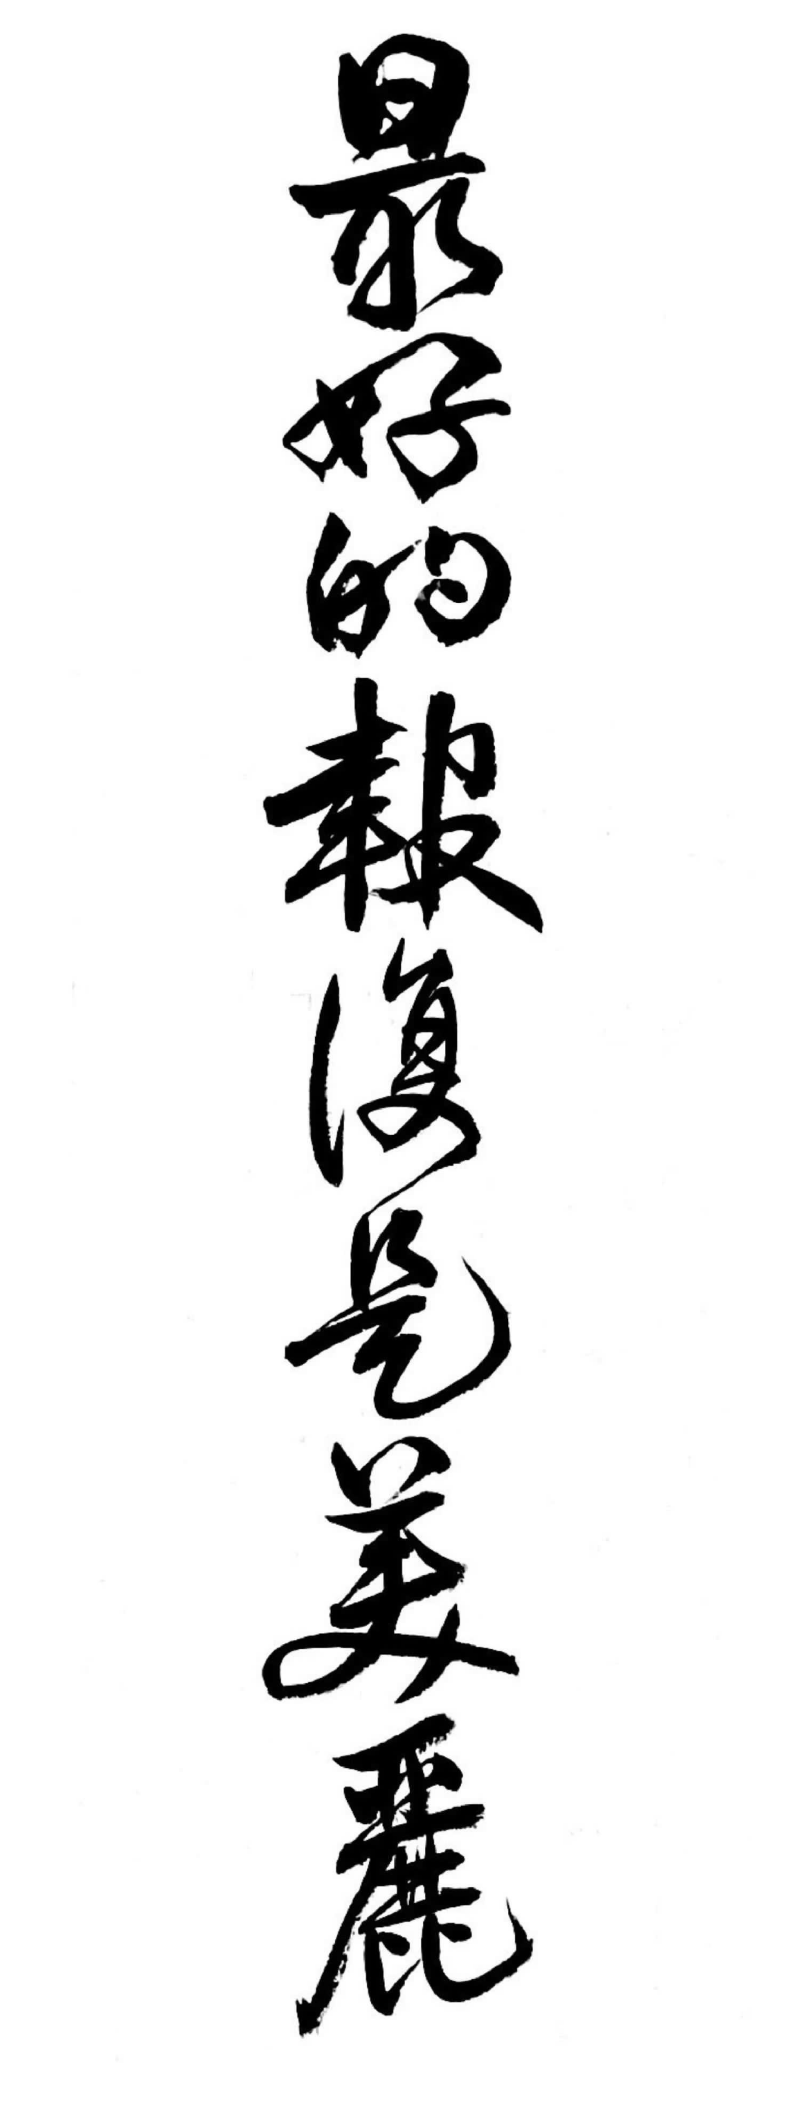 最好的報復是美麗